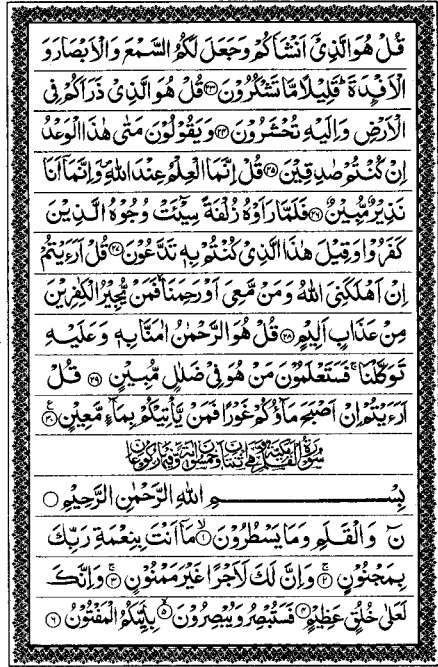 قُلْ هُوَ الَّذِیْۤ اَنْشَاَكُمْ وَجَعَلَ لَكُمُ السَّمْعَ وَالْاَبْصَارَ وَ
الْاَفْـِٕدَةَ ؕ قَلِیْلًا مَّا تَشْكُرُوْنَ ﴿۲۳﴾ قُلْ هُوَ الَّذِیْ ذَرَاَكُمْ فِی
الْاَرْضِ وَاِلَیْهِ تُحْشَرُوْنَ ﴿۲۴﴾ وَیَقُوْلُوْنَ مَتٰی هٰذَا الْوَعْدُ
اِنْ كُنْتُمْ صٰدِقِیْنَ ﴿۲۵﴾ قُلْ اِنَّمَا الْعِلْمُ عِنْدَ اللّٰهِ ۪ وَاِنَّمَاۤ اَنَا
نَذِیْرٌ مُّبِیْنٌ ﴿۲۶﴾ فَلَمَّا رَاَوْهُ زُلْفَةً سِیْٓـَٔتْ وُجُوْهُ الَّذِیْنَ
كَفَرُوْا وَقِیْلَ هٰذَا الَّذِیْ كُنْتُمْ بِهٖ تَدَّعُوْنَ ﴿۲۷﴾ قُلْ اَرَءَیْتُمْ
اِنْ اَهْلَكَنِیَ اللّٰهُ وَمَنْ مَّعِیَ اَوْ رَحِمَنَا ۙ فَمَنْ یُّجِیْرُ الْكٰفِرِیْنَ
مِنْ عَذَابٍ اَلِیْمٍ ﴿۲۸﴾ قُلْ هُوَ الرَّحْمٰنُ اٰمَنَّا بِهٖ وَعَلَیْهِ
تَوَكَّلْنَا ۚ فَسَتَعْلَمُوْنَ مَنْ هُوَ فِیْ ضَلٰلٍ مُّبِیْنٍ ﴿۲۹﴾ قُلْ
اَرَءَیْتُمْ اِنْ اَصْبَحَ مَآؤُكُمْ غَوْرًا فَمَنْ یَّاْتِیْكُمْ بِمَآءٍ مَّعِیْنٍ ﴿۳۰﴾ ع
سُوْرَةُ الْقَلَمِ مَكِّیَّةٌ
بِسْمِ اللّٰهِ الرَّحْمٰنِ الرَّحِیْمِ
نٓ وَالْقَلَمِ وَمَا یَسْطُرُوْنَ ﴿۱﴾ ۙ مَاۤ اَنْتَ بِنِعْمَةِ رَبِّكَ
بِمَجْنُوْنٍ ﴿۲﴾ ۚ وَاِنَّ لَكَ لَاَجْرًا غَیْرَ مَمْنُوْنٍ ﴿۳﴾ ۚ وَاِنَّكَ
لَعَلٰی خُلُقٍ عَظِیْمٍ ﴿۴﴾ فَسَتُبْصِرُ وَیُبْصِرُوْنَ ﴿۵﴾ ۙ بِاَیِّىكُمُ الْمَفْتُوْنُ ﴿۶﴾